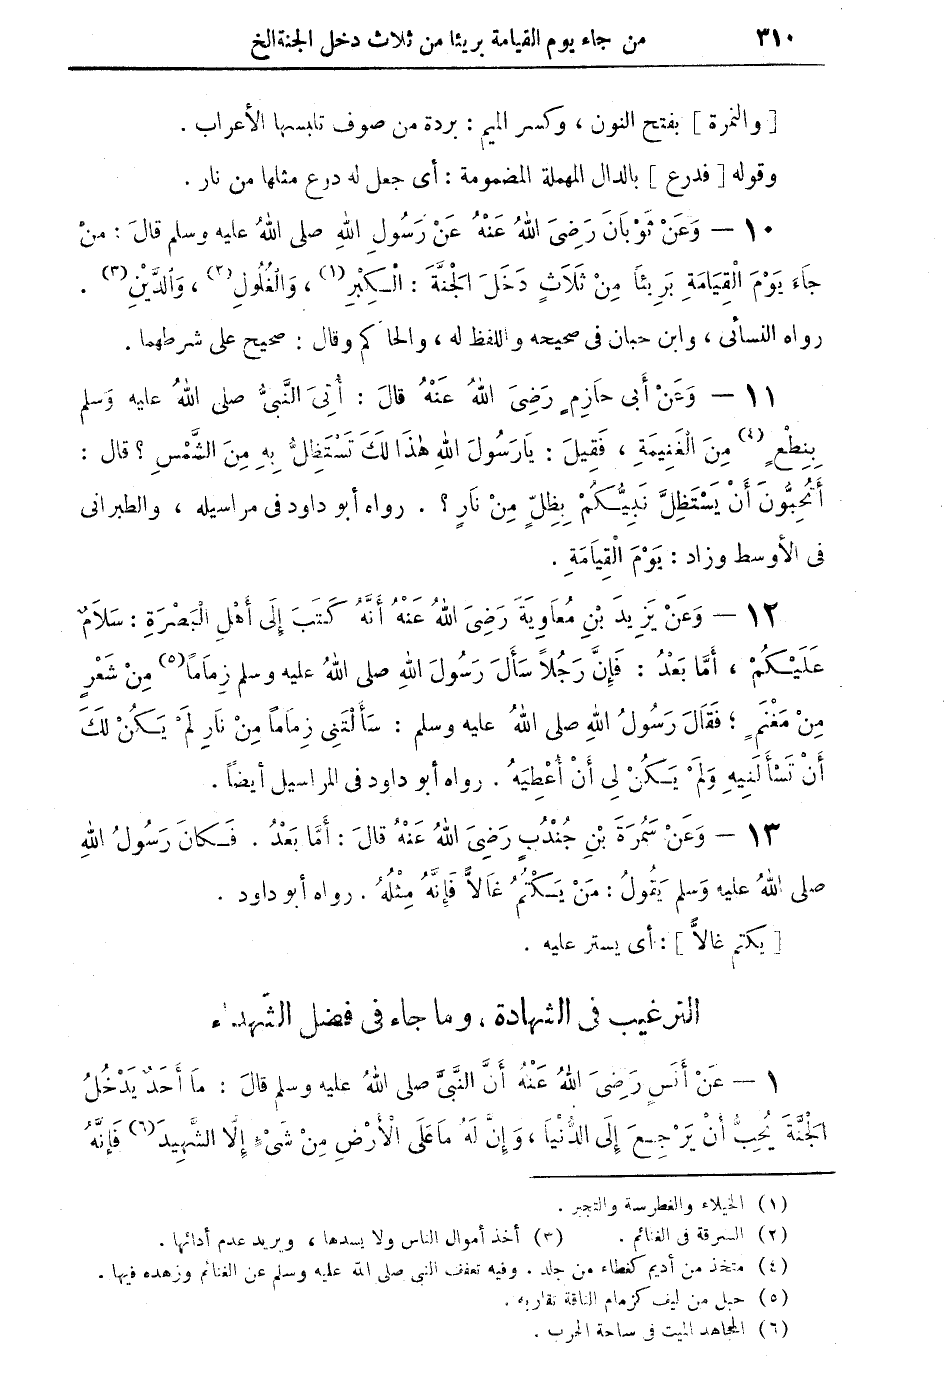 ٣١٠ من جاء يوم القيامة بريئا من ثلاث دخل الجنة الخ
[ والنمرة ] بفتح النون ، وكسر الميم : بردة من صوف تلبسها الأعراب .
وقوله [ فدرع ] بالدال المهملة المضمومة : أى جعل له درع مثلها من نار .
١٠ — وَعَنْ ثَوْبَانَ رَضِىَ اللهُ عَنْهُ عَنْ رَسُولِ اللهِ صلى اللهُ عليه وسلم قالَ : منْ
جَاءَ يَوْمَ الْقِيَامَةِ بَرِيئاً مِنْ ثَلَاثٍ دَخَلَ الجَنَّةَ : الْكِبْرِ (١) ، وَالْغُلُولِ (٢) ، وَالدَّيْنِ (٣) .
رواه النسائى ، وابن حبان فى صحيحه واللفظ له ، والحاكم وقال : صحيح على شرطهما .
١١ — وَعَنْ أَبى حَازِمٍ رَضِىَ اللهُ عَنْهُ قالَ : أُتِىَ النَّبِىُّ صلى اللهُ عليه وَسلم
بِنِطْعٍ (٤) مِنَ الْغَنِيمَةِ ، فَقِيلَ : يَارَسُولَ اللهِ هٰذَا لَكَ تَسْتَظِلُّ بِهِ مِنَ الشَّمْسِ ؟ قال :
أَتُحِبُّونَ أَنْ يَسْتَظِلَّ نَبِيُّكُمْ بِظِلٍّ مِنْ نَارٍ ؟ . رواه أبو داود فى مراسيله ، والطبرانى
فى الأوسط وزاد : يَوْمَ الْقِيَامَةِ .
١٢ — وَعَنْ يَزِيدَ بْنِ مُعَاوِيَةَ رَضِىَ اللهُ عَنْهُ أَنَّهُ كَتَبَ إِلَى أَهْلِ الْبَصْرَةِ : سَلَامٌ
عَلَيْكُمْ ، أَمَّا بَعْدُ : فَإِنَّ رَجُلاً سَأَلَ رَسُولَ اللهِ صلى اللهُ عليه وسلم زِمَاماً (٥) مِنْ شَعْرٍ
مِنْ مَغْنَمٍ ؛ فَقَالَ رَسُولُ اللهِ صلى اللهُ عليه وسلم : سَأَلْتَنِى زِمَاماً مِنْ نَارٍ لَمْ يَكُنْ لَكَ
أَنْ تَسْأَلَنِيهِ وَلَمْ يَكُنْ لِى أَنْ أُعْطِيَهُ . رواه أبو داود فى المراسيل أيضاً .
١٣ — وَعَنْ سَمُرَةَ بْنِ جُنْدُبٍ رَضِىَ اللهُ عَنْهُ قالَ : أَمَّا بَعْدُ . فَكانَ رَسُولُ اللهِ
صلى اللهُ عليه وَسلم يَقُولُ : مَنْ يَكْتُمُ غَالاًّ فَإِنَّهُ مِثْلُهُ . رواه أبو داود .
[ يكتم غالاًّ ] : أى يستر عليه .
الترغيب فى الشهادة ، وما جاء فى فضل الشهداء
١ — عَنْ أَنَسٍ رَضِىَ اللهُ عَنْهُ أَنَّ النَّبِىَّ صلى اللهُ عليه وسلم قالَ : مَا أَحَدٌ يَدْخُلُ
الجَنَّةَ يُحِبُّ أَنْ يَرْجِعَ إِلَى الدُّنْيَا ، وَإِنَّ لَهُ مَا عَلَى الْأَرْضِ مِنْ شَىْءٍ إِلَّا الشَّهِيدَ (٦) فَإِنَّهُ
(١) الخيلاء والغطرسة والتجبر .
(٢) السرقة فى الغنائم . (٣) أخذ أموال الناس ولا يسدها ، ويريد عدم أدائها .
(٤) متخذ من أديم كغطاء من جلد . وفيه تعفف النبى صلى الله عليه وسلم عن الغنائم وزهده فيها .
(٥) حبل من ليف كزمام الناقة تقاد به .
(٦) المجاهد الميت فى ساحة الحرب .